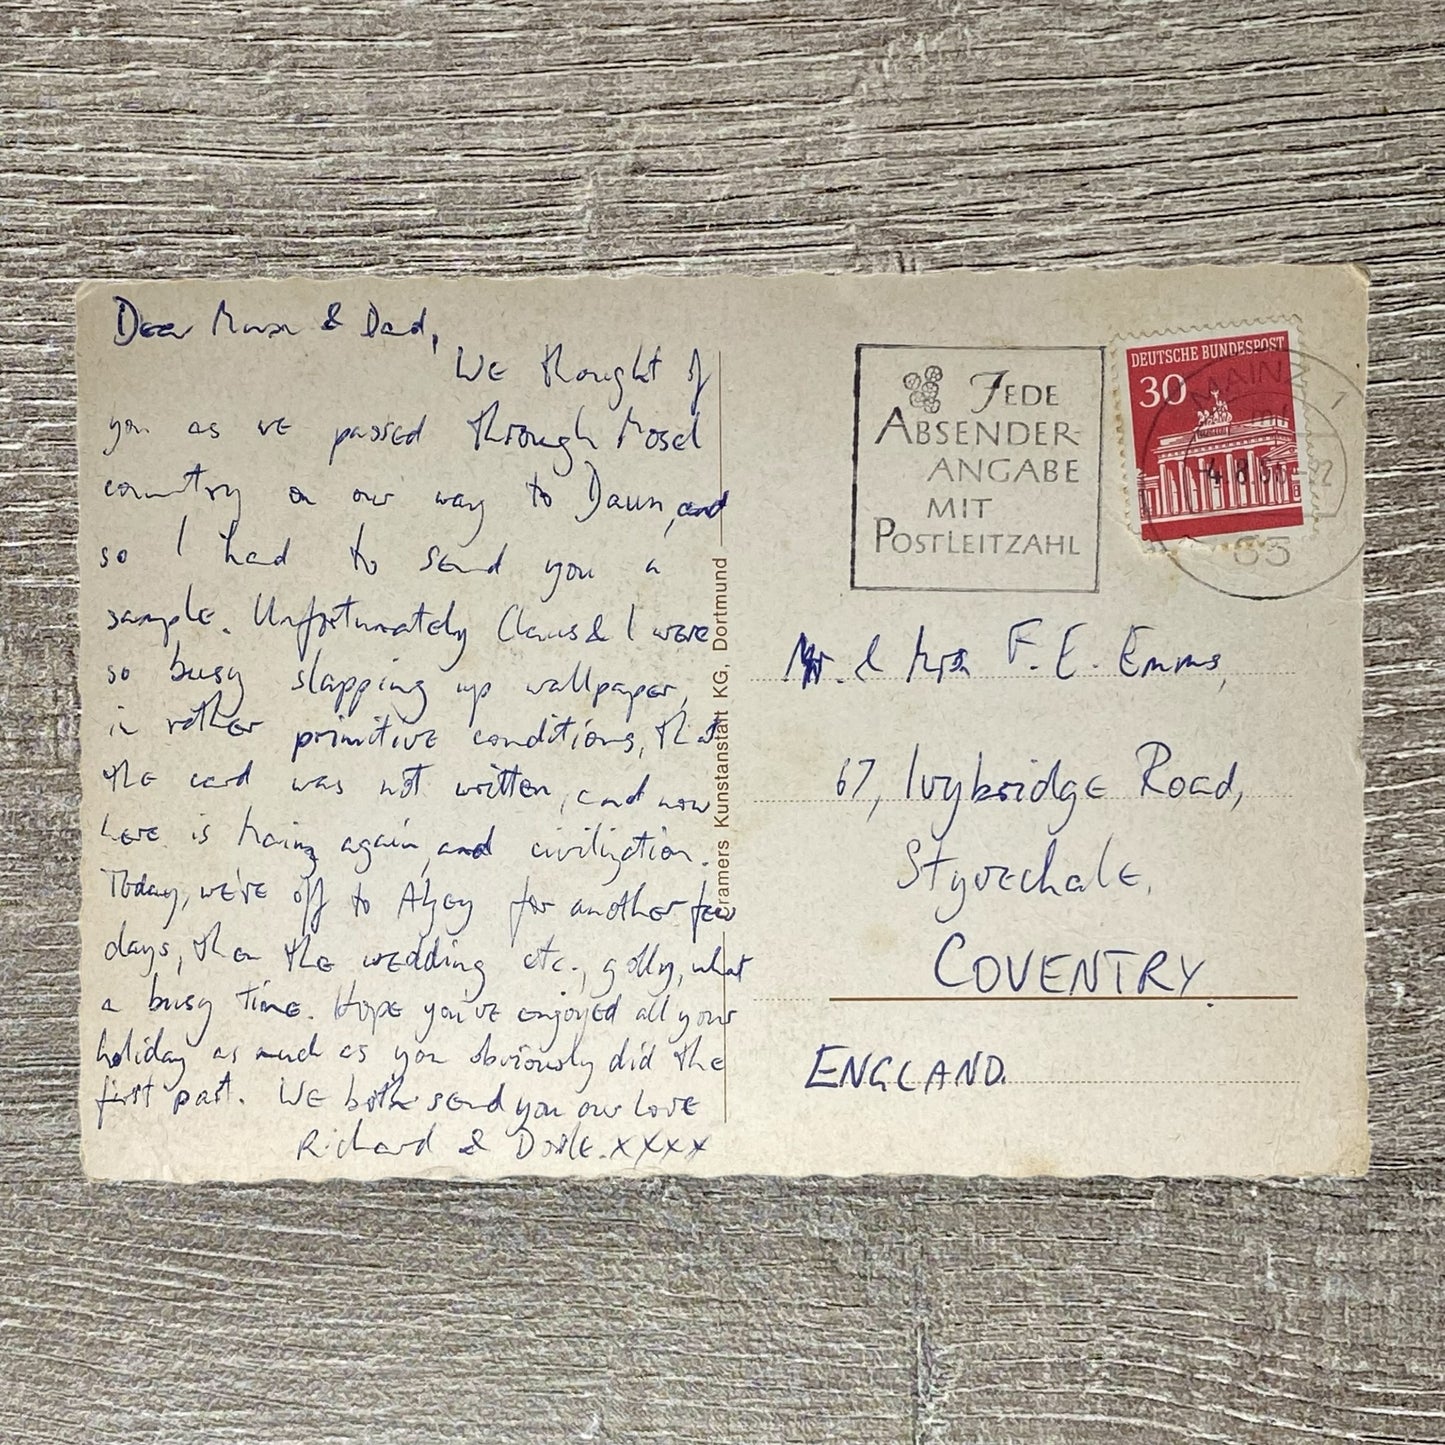 Dear Mum & Dad,
We thought of
you as we passed through Mosel
country on our way to Daun, and
so I had to send you a
sample. Unfortunately Claus & I were
so busy slapping up wallpaper,
in rather primitive conditions, that
the card was not written, and now
here is Mainz again, and civilization.
Today, we're off to Alzey for another few
days, then the wedding etc., golly, what
a busy time. Hope you've enjoyed all your
holiday as much as you obviously did the
first part. We both send you our love
Richard & xxxx
Cramers Kunstanstalt KG, Dortmund
JEDE
ABSENDER-
ANGABE
MIT
POSTLEITZAHL
DEUTSCHE BUNDESPOST
30
MAINZ 1
Mr. & Mrs F. E. Emms,
67, Ivybridge Road,
Styvechale,
COVENTRY.
ENGLAND.